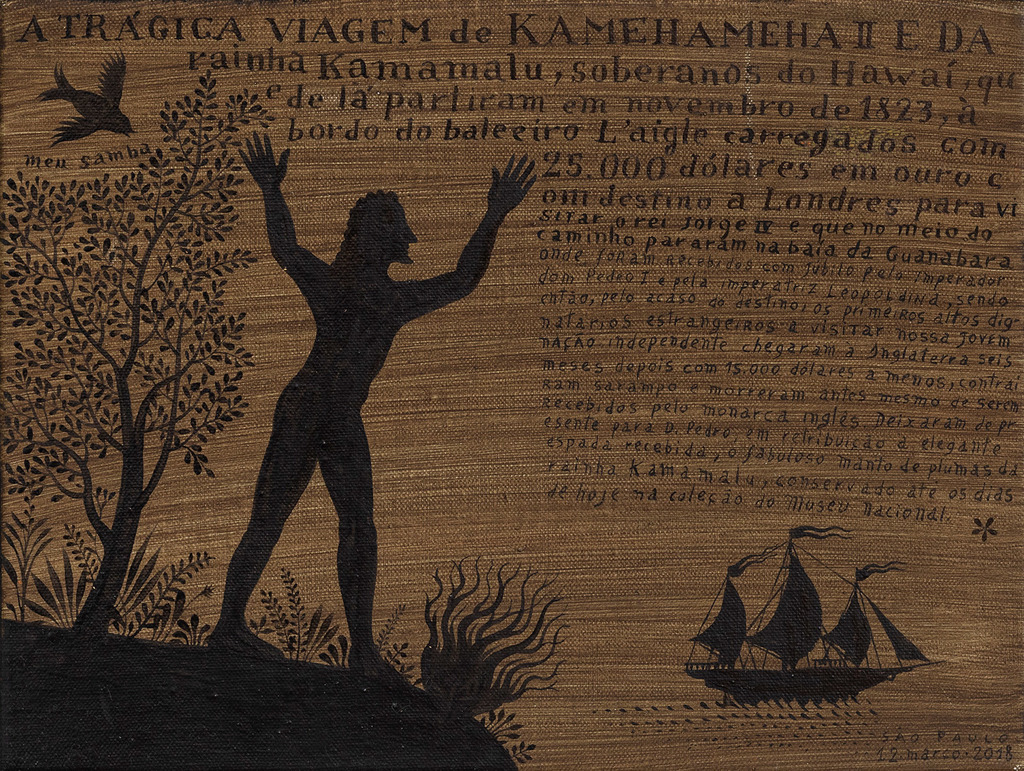 A TRÁGICA VIAGEM de KAMEHAMEHA II E DA
rainha Kamamalu, soberanos do Hawaí, qu
e de lá partiram em novembro de 1823, à
bordo do baleeiro L'aigle carregados com
25.000 dólares em ouro c
om destino a Londres para vi
sitar o rei Jorge IV e que no meio do
caminho pararam na baía da Guanabara
onde foram recebidos com júbilo pelo imperador
dom Pedro I e pela imperatriz Leopoldina, sendo
então, pelo acaso do destino, os primeiros altos dig
natários estrangeiros a visitar nossa jovem
nação independente chegaram a Inglaterra seis
meses depois com 15.000 dólares a menos, contrai
ram sarampo e morreram antes mesmo de serem
recebidos pelo monarca inglês Deixaram de pr
esente para D. Pedro em retribuição a elegante
espada recebida, o fabuloso manto de plumas da
rainha Kamamalu, conservado até os dias
de hoje na coleção do Museu Nacional.
meu samba
SÃO PAULO
12 março. 2018